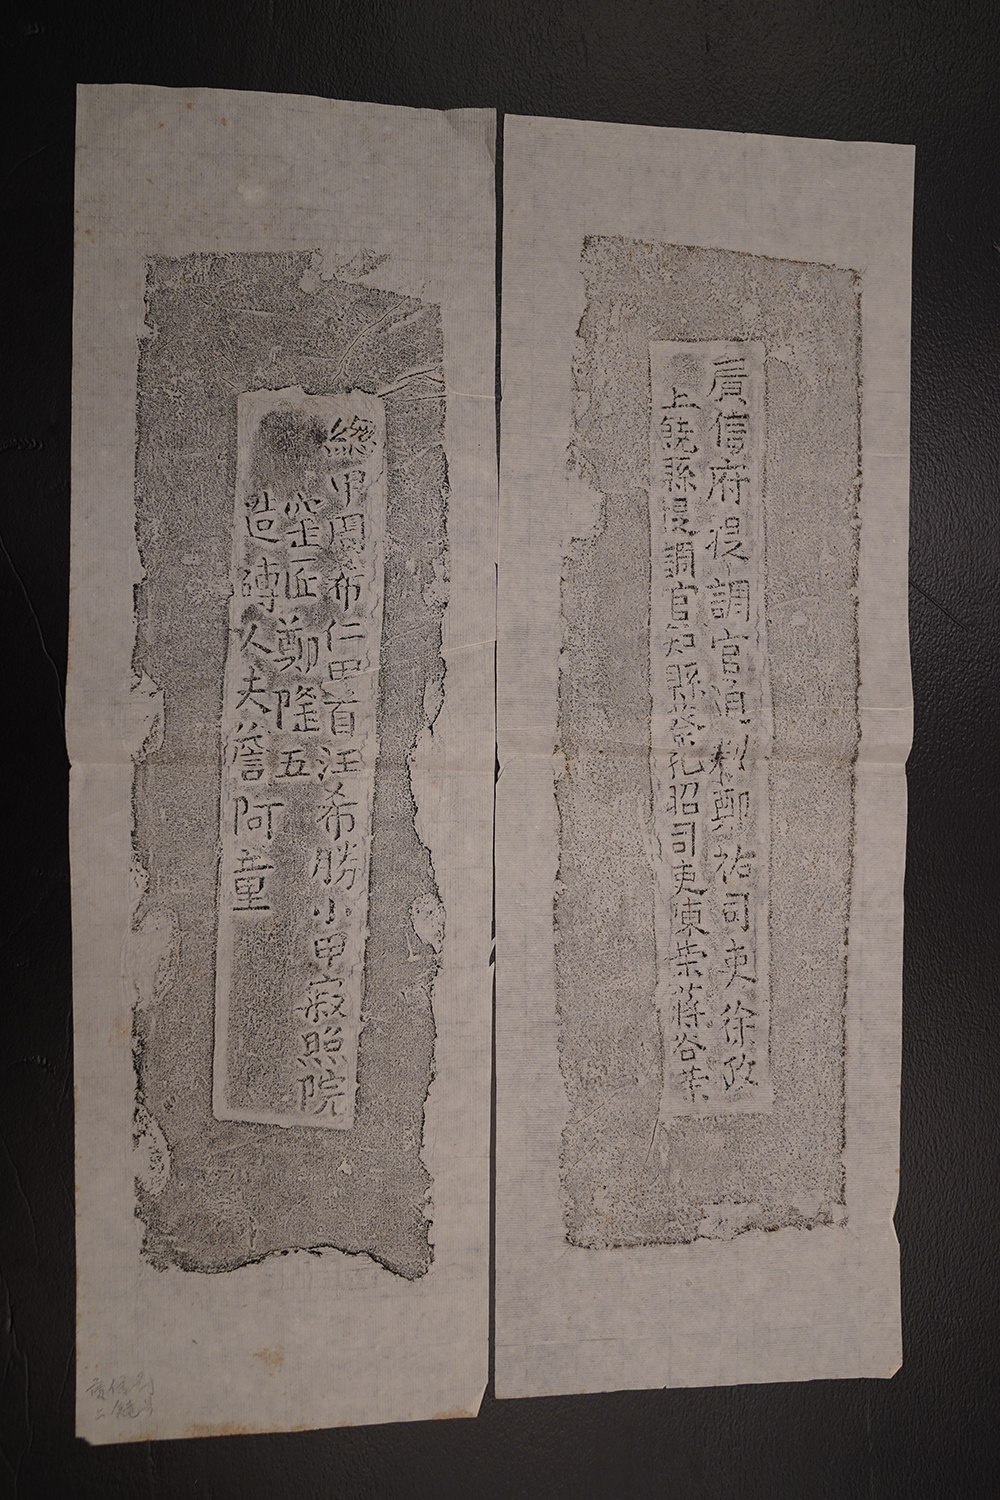 廣信府提調官通判鄭祐司吏徐政
上饒縣提調官知縣孔昭司吏東榮蔣谷榮
總甲周布仁甲首汪希勝小甲寂照院
窑匠鄭隆五
造磚人夫詹阿童
廣信府
上饒縣